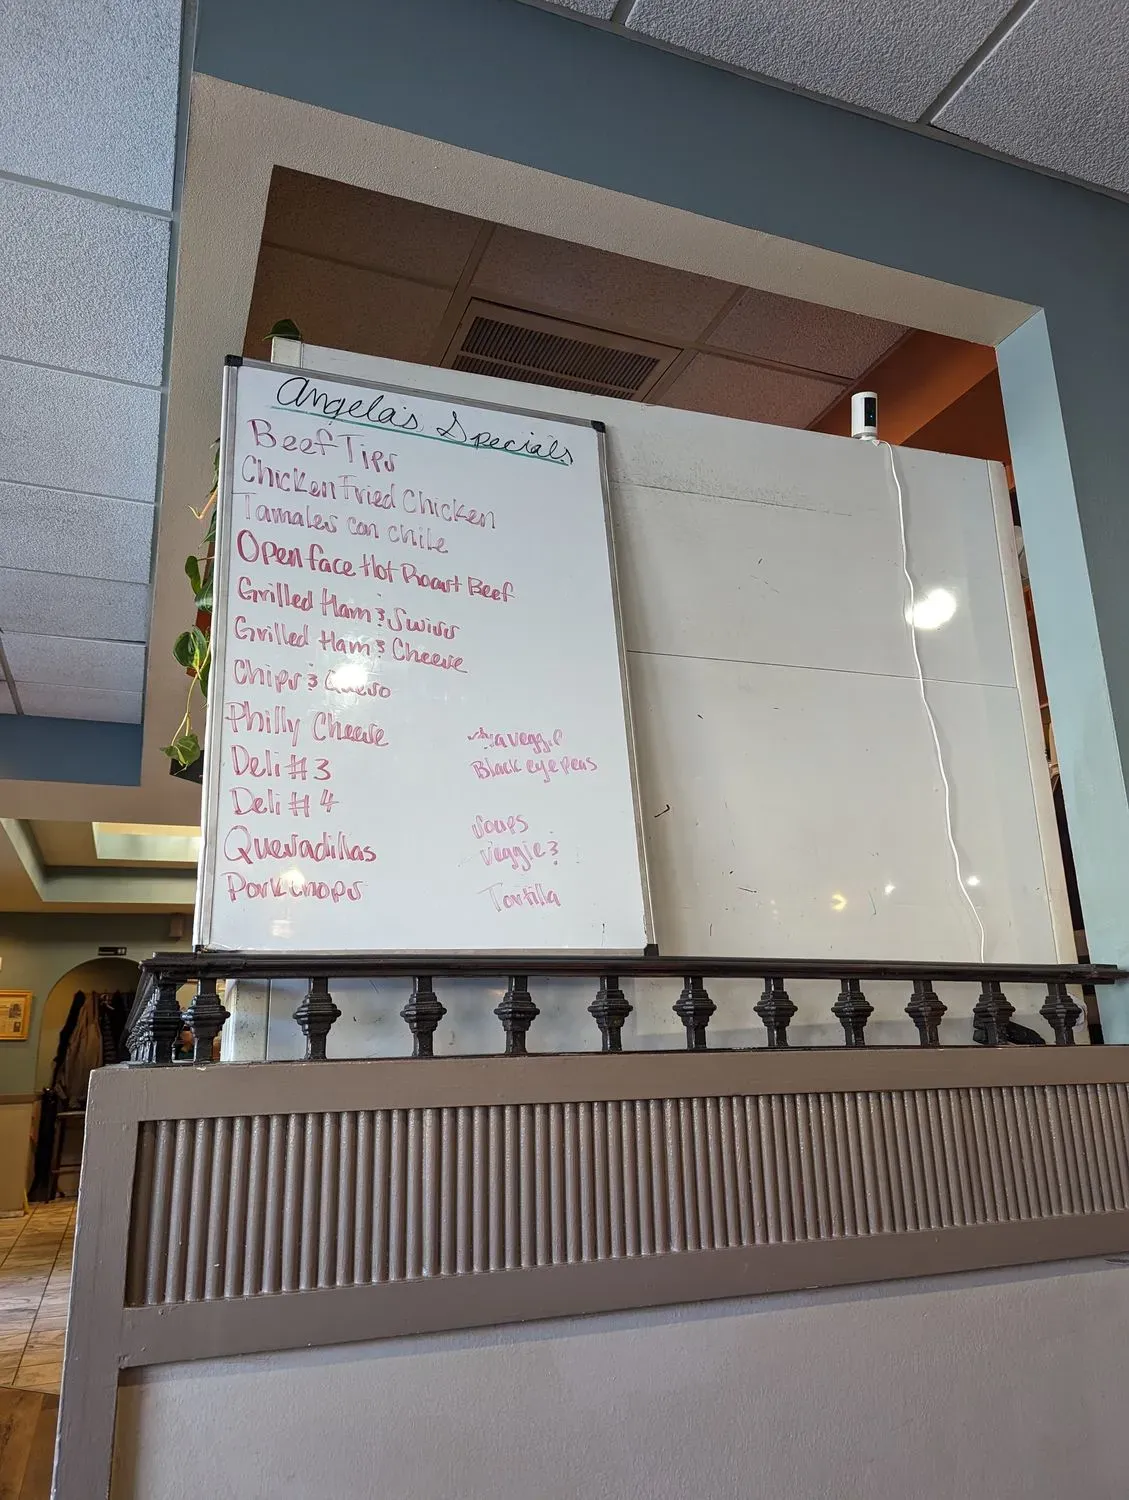 Angela's Specials
Beef Tips
Chicken Fried Chicken
Tamales con chile
Open face Hot Roast Beef
Grilled Ham & Swiss
Grilled Ham & Cheese
Chips & Queso
Philly Cheese
Deli # 3
Deli # 4
Quesadillas
Porkchops
veggie
Black eye peas
Soups
Veggie &
Tortilla